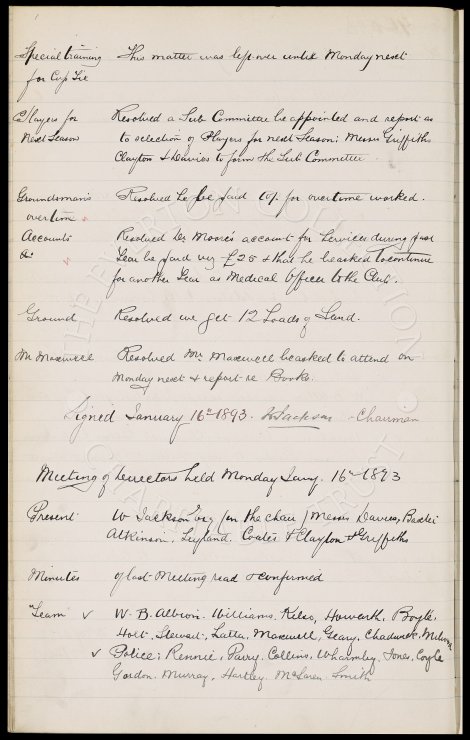 Special training This matter was left over until Monday next
for Cup Tie
Players for Resolved a Sub Committee be appointed and report as
Next Season to selection of Players for next Season: Messrs Griffiths
Clayton & Davies to form the Sub Committee.
Groundsman's Resolved he be paid for overtime worked.
overtime
Accounts Resolved Dr Moore's account for Services during past
Year be paid viz £25 & that he be asked to continue
for another Year as Medical Officer to the Club.
Ground Resolved we get 12 Loads of Sand.
Mr Maxwell Resolved Mr Maxwell be asked to attend on
Monday next & report re Books.
Signed January 16th 1893. W Jackson Chairman
Meeting of Directors held Monday Jany. 16th 1893
Present W Jackson Esq (in the chair) Messrs Davies, Baxter
Atkinson, Leyland, Coates & Clayton & Griffiths
Minutes of last Meeting read & confirmed
"Team" ✓ W. B. Albion. Williams, Kelso, Howarth, Boyle,
Holt, Stewart, Latta, Maxwell, Geary, Chadwick, Milward
✓ Police: Rennie, Parry, Collins, Wharmby, Jones, Coyle
Gordon, Murray, Hartley, McLaren, Smith
THE EVERTON COLLECTION
CHARITABLE TRUST